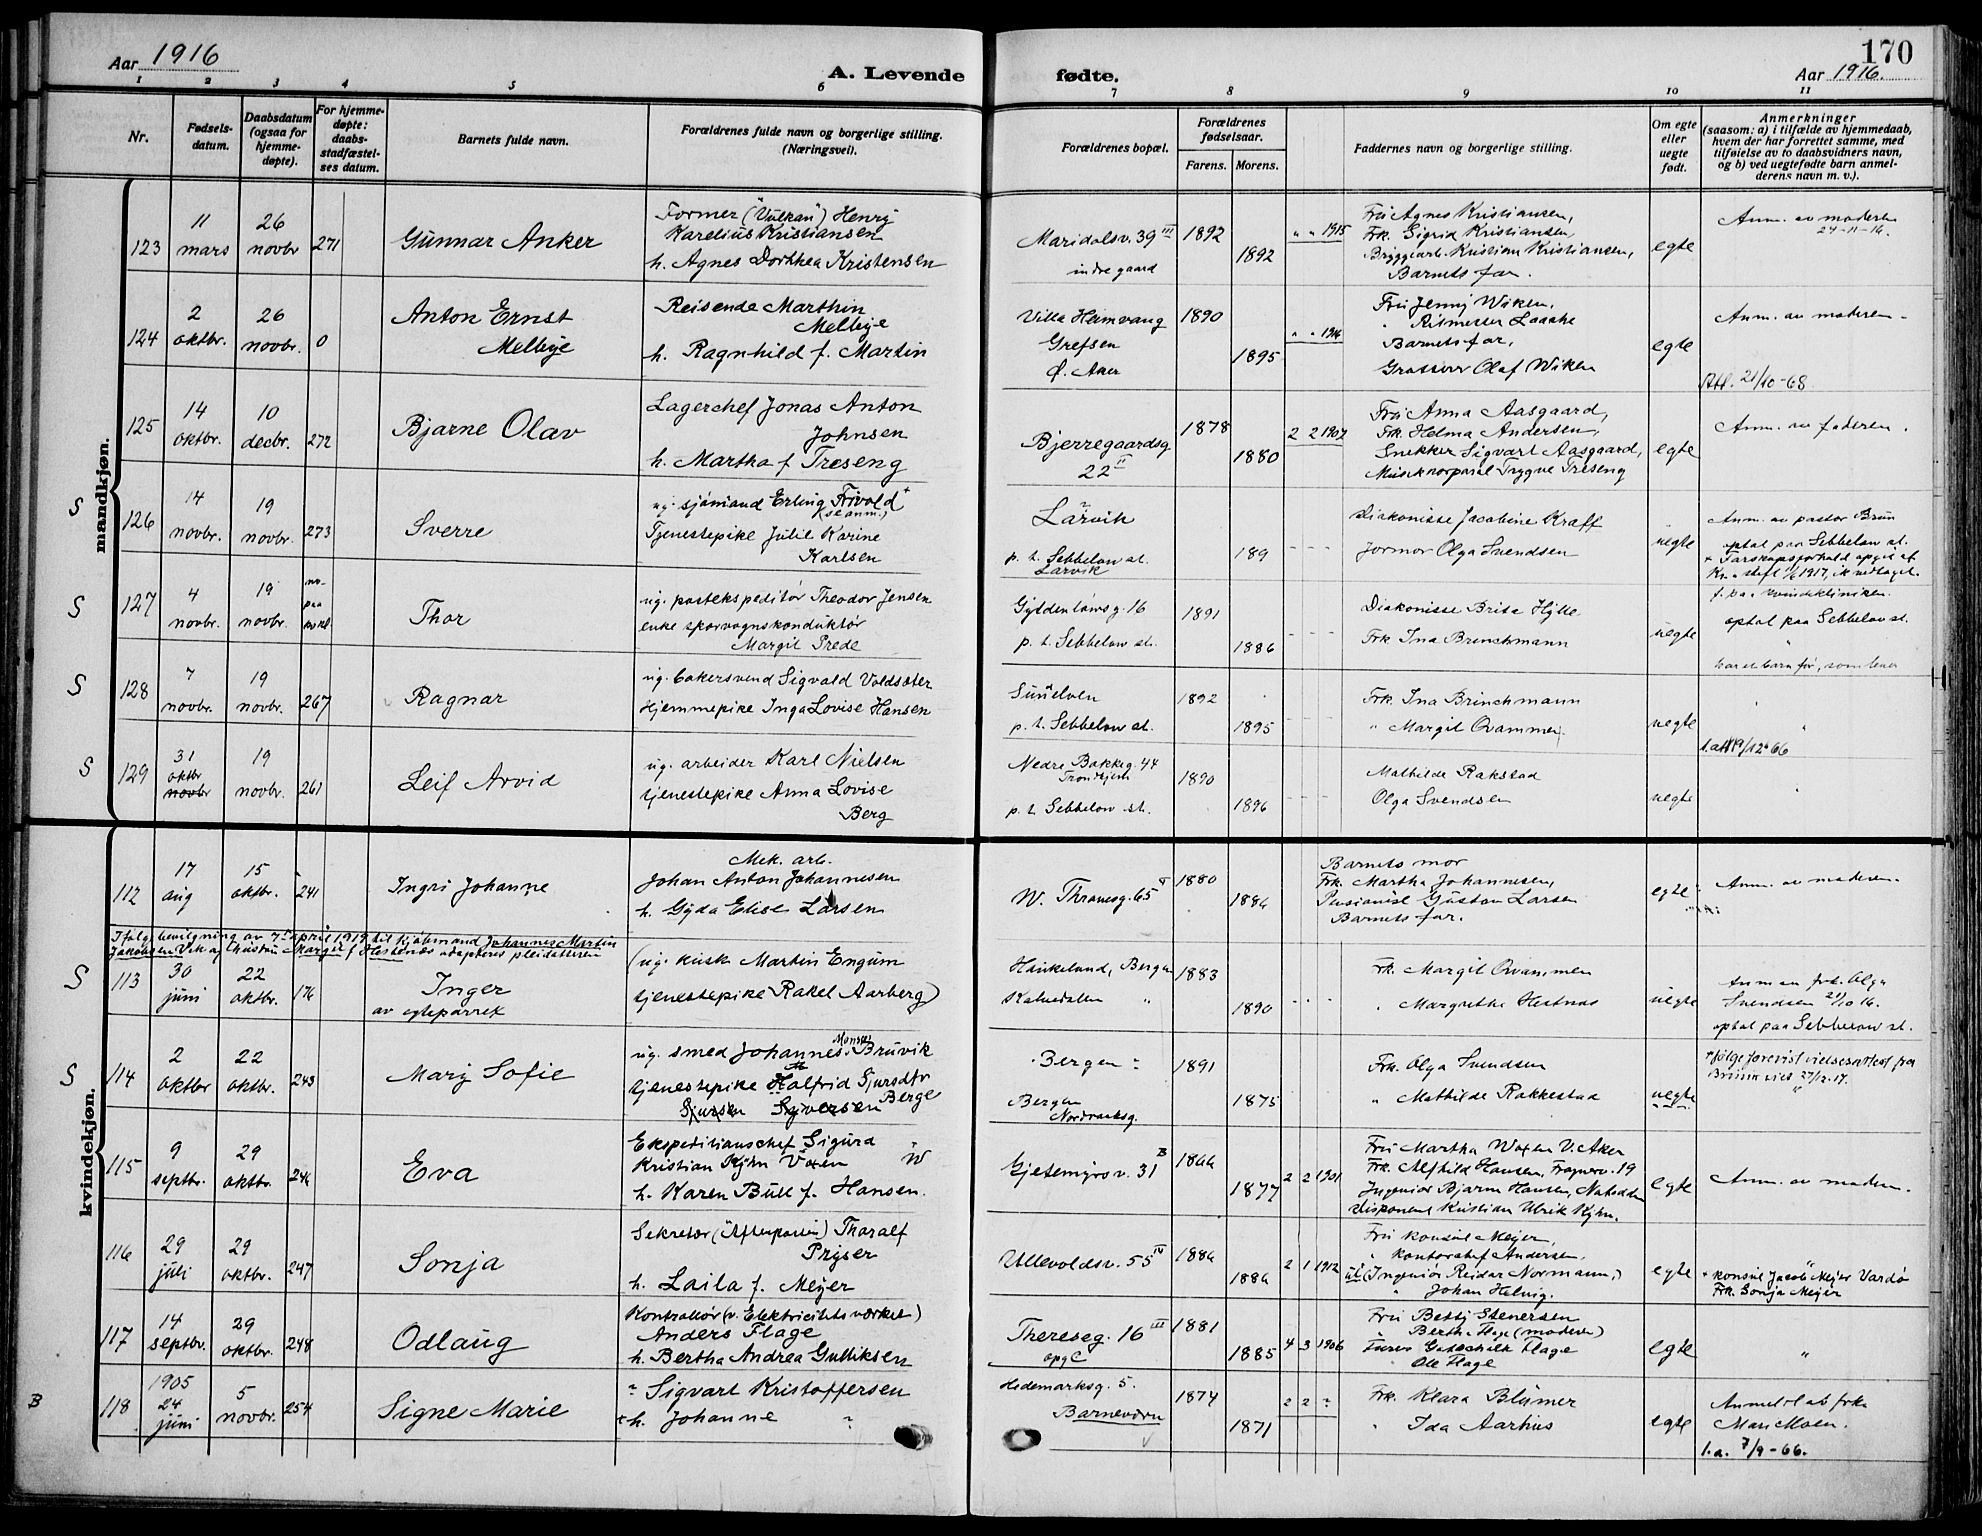 Aar 1916
A. Levende fødte.
170
Aar 1916.
1 2 3 4 5 6 7 8 9 10 11
Nr.
Fødsels-
datum.
Daabsdatum
(ogsaa for
hjemme-
døpte).
For hjemme-
døpte:
daabs-
stadfæstel-
ses datum.
Barnets fulde navn.
Forældrenes fulde navn og borgerlige stilling.
(Næringsvei).
Forældrenes bopæl.
Forældrenes
fødselsaar.
Farens. Morens.
Faddernes navn og borgerlige stilling.
Om egte
eller
uegte
født.
Anmerkninger
(saasom: a) i tilfælde av hjemmedaab,
hvem der har forrettet samme, med
tilføielse av to daabsvidners navn,
og b) ved uegtefødte barn anmel-
derens navn m. v.).
mandkjøn.
123
11
mars
26
novbr
271
Gunnar Anker
Former ("Vulkan") Henry
Karelius Kristiansen
h. Agnes Dorthea Kristensen
Maridalsv. 39 III
indre gaard
1892
1892
" " 1915
Fru Agnes Kristiansen,
Frk. Sigrid Kristiansen
Bryggearb. Kristian Kristiansen,
Barnets far.
egte
Anm. av moderen
24-11-16.
124
2
oktbr.
26
novbr.
0
Anton Ernst
Melbye
Reisende Marthin
Melbye
h. Ragnhild f. Martin
Villa Hemvang
Grefsen
Ø. Aker
1890
1895
" " 1914
Fru Jenny Wiken,
Barnets far,
Olaf Wiken
egte
Anm. av moderen
Att. 21/10-68
125
14
oktbr.
10
decbr.
272
Bjarne Olav
Lagerchef Jonas Anton
Johnsen
h. Martha f Treseng
Bjerregaardsg
22 II
1878
1880
2 2 1907
Fru Anna Aasgaard,
Frk. Helma Andersen,
Snekker Sigvart Aasgaard,
Musikkorporal Trygve Treseng
egte
Anm. av faderen.
S
126
14
novbr.
19
novbr.
273
Sverre
ug. sjømand Erling Frivold +
(se anm.)
Tjenestepike Julie Karine
Karlsen
Larvik
p. t. Sebbelow st.
Larvik
189
Diakonisse Jacobine Kraft
Jormor Olga Svendsen
uegte
Anm. av pastor Brun
optat paa Sebbelow st.
S
127
4
novbr.
19
novbr.
Thor
ug. postekspeditør Theodor Jensen
enke sporvognskonduktør
Margit Prede
Gyldenløvesg. 16
p. t. Sebbelow st.
1891
1886
Diakonisse Brita Hylle
Frk Ina Brinchmann
uegte
f. paa kvindeklinikken.
optat paa Sebbelow st.
S
128
7
novbr.
19
novbr.
267
Ragnar
ug. bakersvend Sigvald Voldsæter
Hjemmepike Inga Lovise Hansen
Sunelven
p. t. Sebbelow st.
1892
1895
Frk. Ina Brinchmann
" Margit Qvammen
uegte
S
129
31
oktbr
novbr
19
novbr.
261
Leif Arvid
ug. arbeider Karl Nielsen
tjenestepike Anna Lovise
Berg
Nedre Bakkeg. 44
Trondhjem
p. t. Sebbelow st.
1890
1896
Mathilde Rakstad
Olga Svendsen
uegte
l.att 19/12-66
kvindekjøn.
112
17
aug
15
oktbr.
241
Ingri Johanne
Mek. arb.
Johan Anton Johannesen
h. Gyda Elise Larsen
W. Thranesg. 65 V
1880
1886
Barnets mor
Frk. Martha Johannesen,
Pensionist Gustav Larsen
Barnets far.
egte
Anm. av moderen.
Ifølge bevilgning av 7de april 1919 til kjøbmand Johannes Martin
Jakobsen Vik og Christine Margit f Hestenes adopteres pleiedatteren
S
113
30
juni
22
oktbr.
176
Inger
av egteparret
(ug. kusk Martin Engum
tjenestepike Rakel Aarberg)
Haukeland, Bergen
Kalvedalen "
1883
1890
Frk. Margit Qvammen
" Margrethe Hestnes
uegte
Anm av frk. Olga
Svendsen 21/10 16.
optat paa Sebbelow st.
S
114
2
oktbr
22
oktbr.
243
Mary Sofie
ug. smed Johannes Monsen Bruvik
tjenestepike Halfrid Sjursdtr
Sjursen Syversen Berge
Bergen
Bergen
Nordraaksg.
1891
1875
Frk. Olga Svendsen
" Mathilde Rakkestad
uegte
115
9
septbr.
29
oktbr.
246
Eva
Ekspeditionschef Sigurd
Kristian Kyhn Voxen W
h. Karen Bull f. Hansen.
Gjetemyrsv. 31 B
1866
1877
2 2 1901
Fru Martha Woxen V. Aker
Frk. Alfhild Hansen, Frognerv. 19
Ingeniør Bjarne Hansen, Notodden
disponent Kristian Ulrik Kyhn.
egte
Anm. av moderen.
116
29
juli
29
oktbr.
247
Sonja
Sekretær (Aftenposten) Tharalf
Pryser
h. Laila f. Meyer
Ullevoldsv. 55 IV
1886
1886
2 1 1912
Fru konsul Meyer,
" kontorchef Andersen.
(Ingeniør Reidar Normann,)
" Johan Helvig.
egte
+ konsul Jacob Meyer Vardø
Frk. Sonja Meyer
117
14
septbr.
29
oktbr.
248
Odlaug
Kontrollør (v. Elektricitetsverket)
Anders Flage
h. Bertha Andrea Gulliksen
Thereseg. 16 III
opg C
1881
1885
4 3 1906
Fru Betsy Stenersen
" Bertha Flage (moderen)
Gotschalk Flage
Ole Flage
egte
"
B
118
1905
24
juni
5
novbr.
254
Signe Marie
" Sigvart Kristoffersen
h. Johanne "
Hedemarksg. 5.
Barnevern
1874
1871
2 2 "
Frk. Klara Blümer
" Ida Aarhus
egte
Anmeldt ab frk.
Mari Moen.
l.a. 7/9-66.